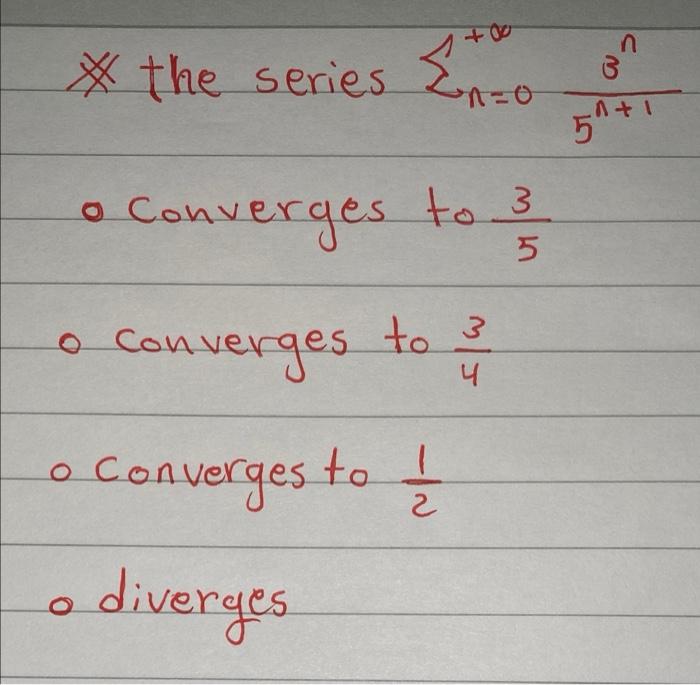 ※ the series ∑_{n=0}^{+∞} 3^n / 5^{n+1}
o Converges to 3/5
o Converges to 3/4
o Converges to 1/2
o diverges